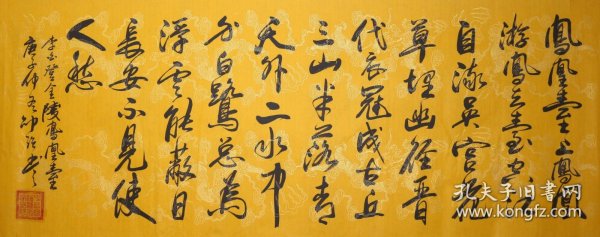 鳳凰臺上鳳凰
游鳳去臺空江
自流吳宮花
草埋幽徑晉
代衣冠成古丘
三山半落青
天外二水中
分白鷺总為
浮雲能蔽日
長安不見使
人愁
李白登金陵鳳凰臺
庚子仲冬
孔夫子旧书网
www.kongfz.com